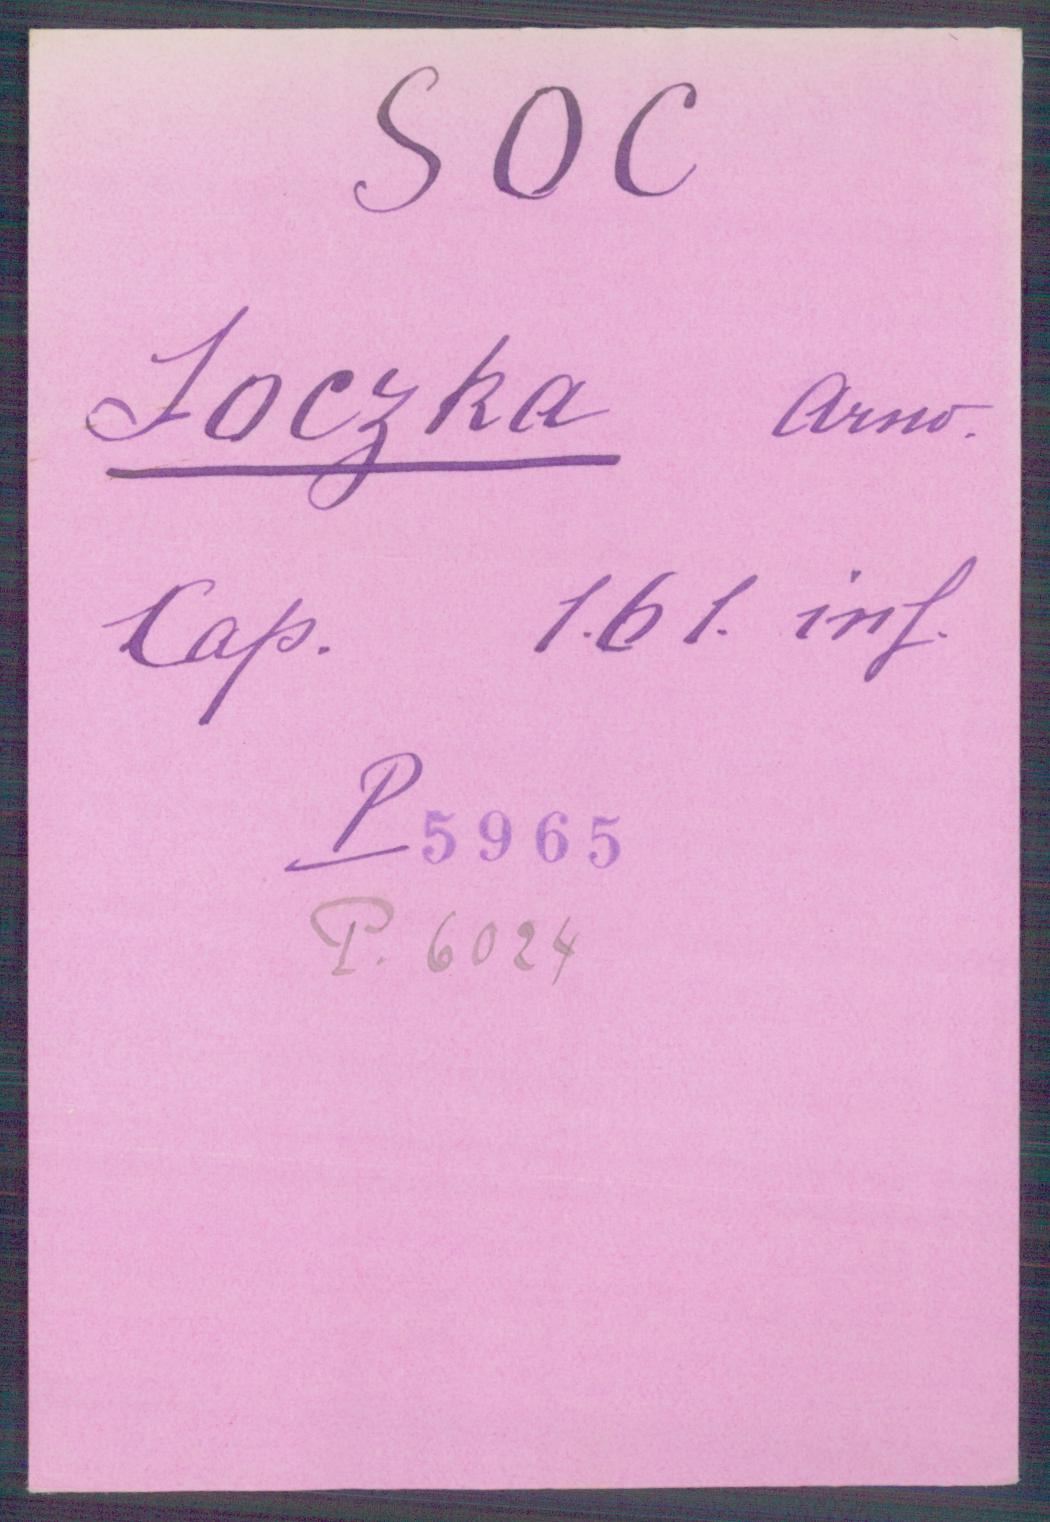 SOC
Soczka Arno.
Cap. 1.61. inf.
P 5965
P. 6024